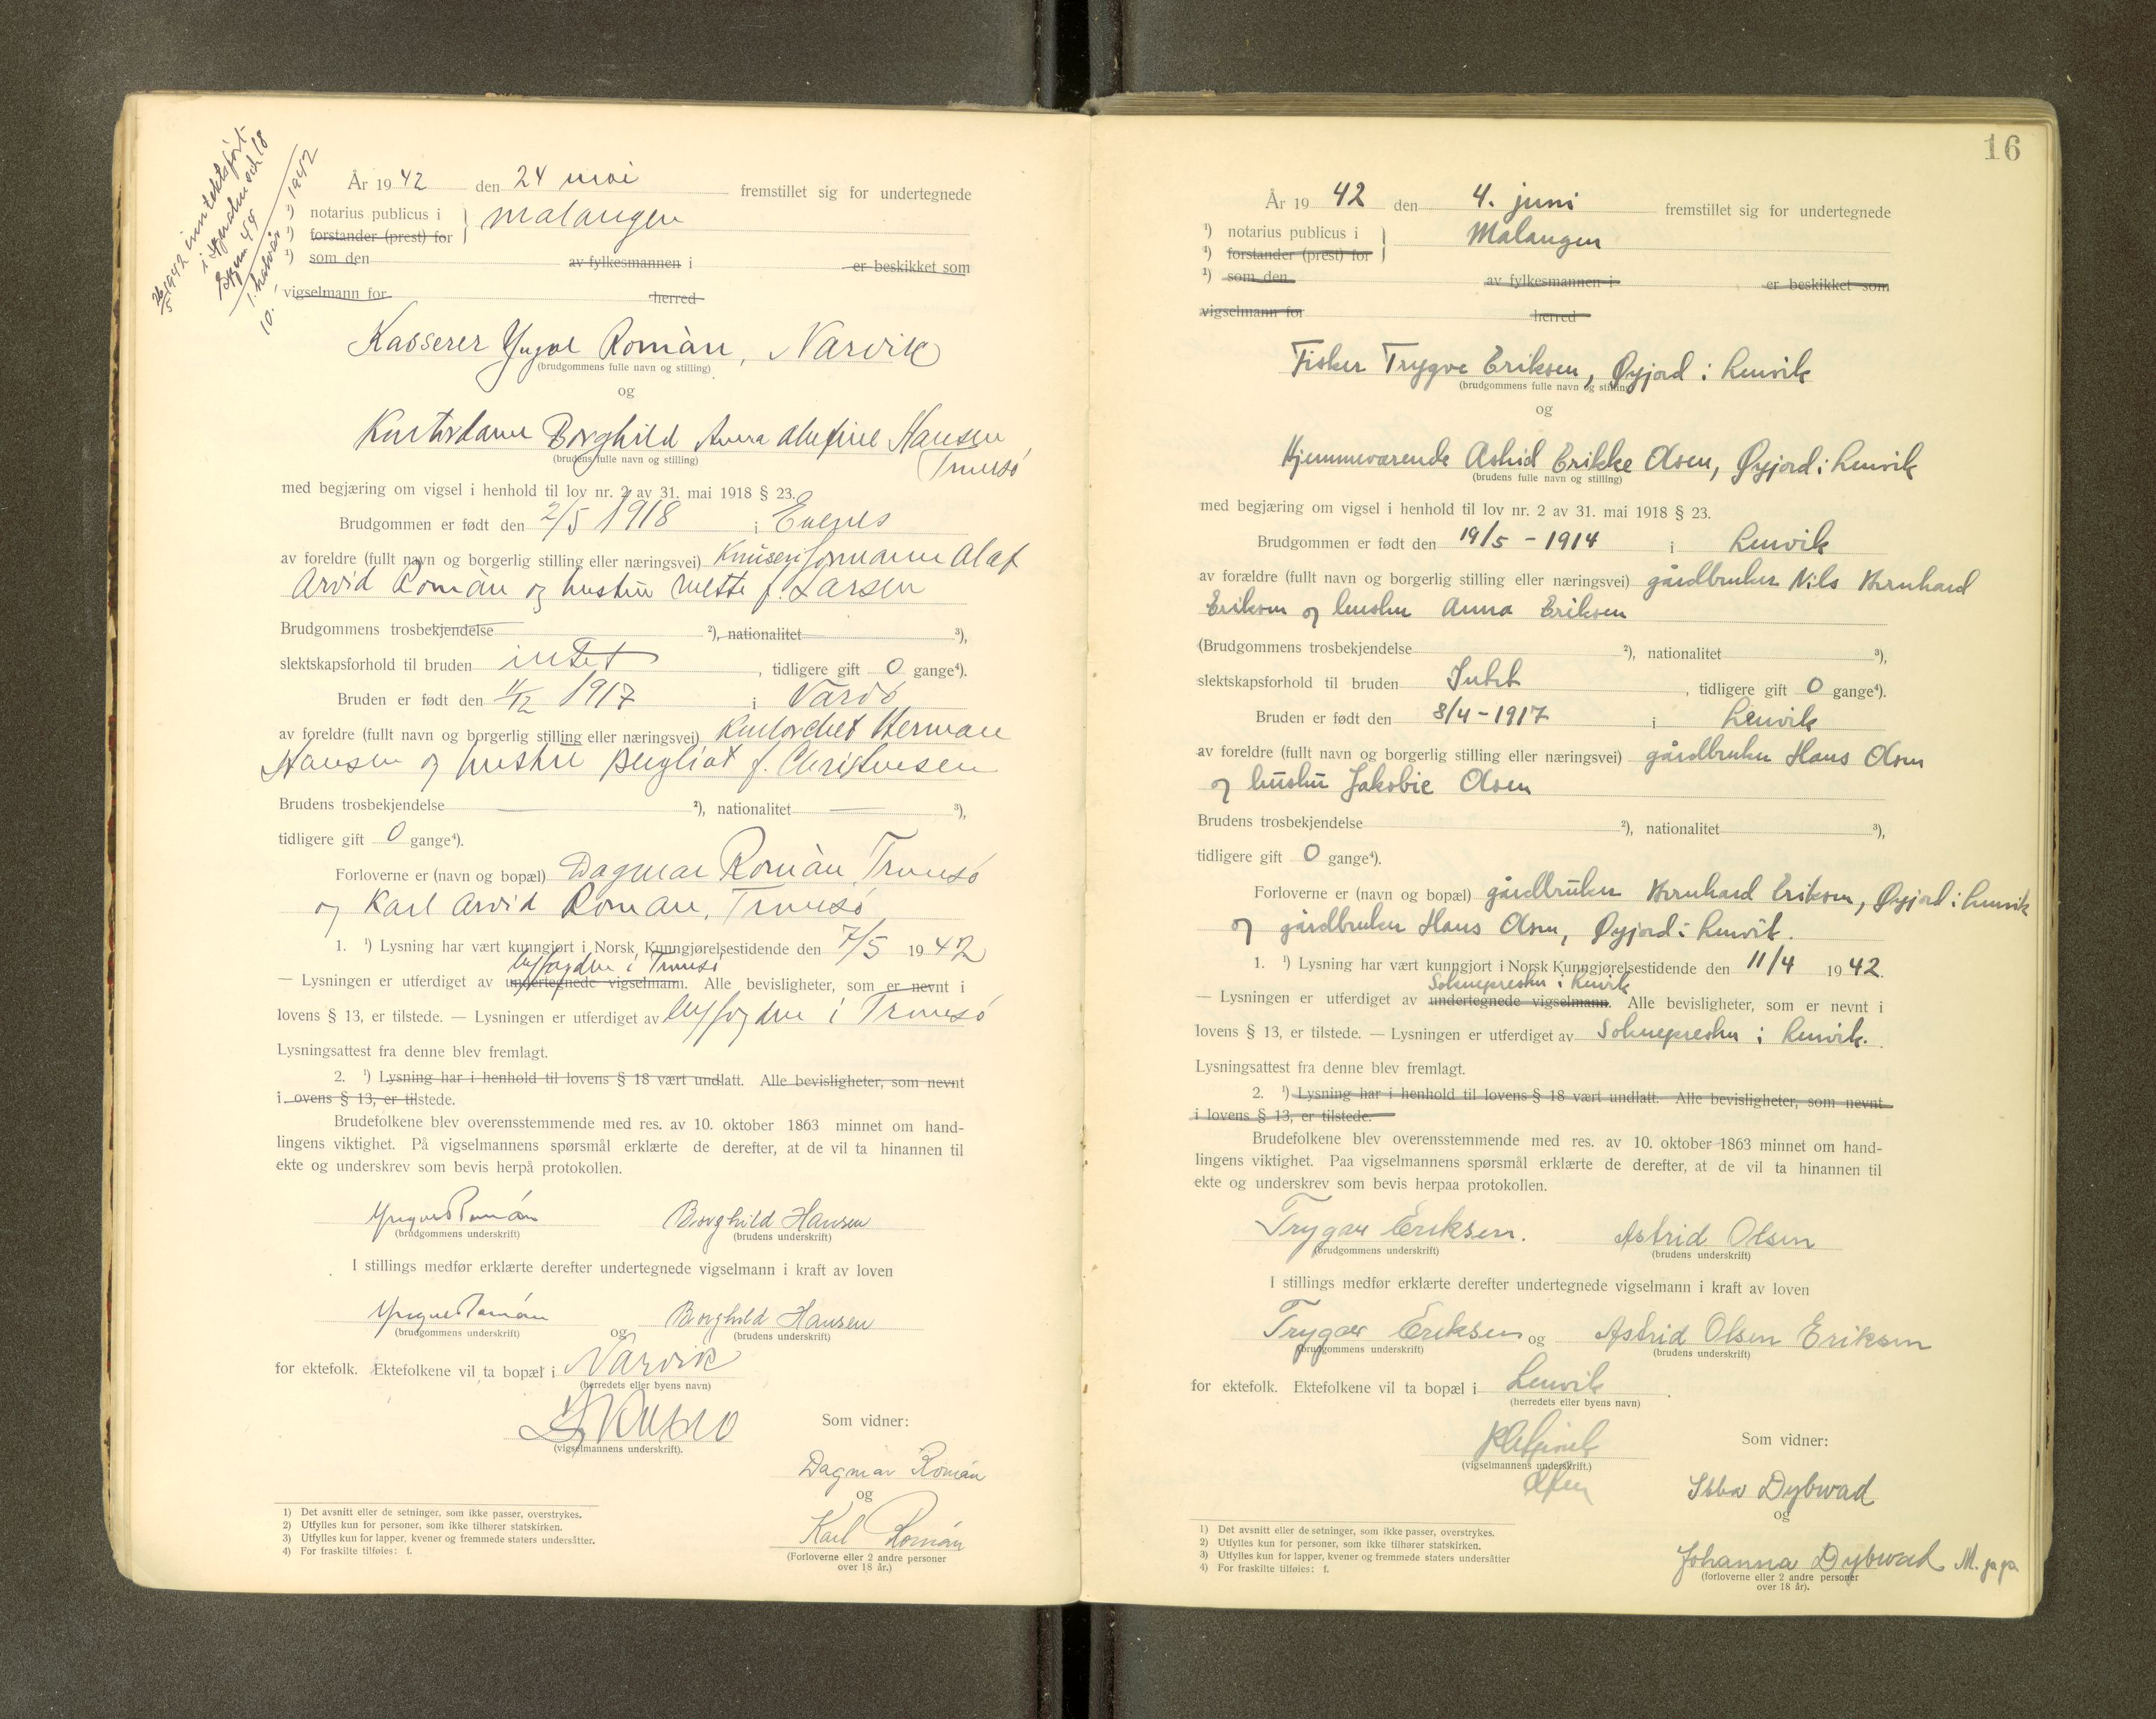 År 1942 den 24 mai fremstillet sig for undertegnede
¹) notarius publicus i Malangen
¹) forstander (prest) for
¹) som den av fylkesmannen i er beskikket som
vigselmann for herred
Kasserer Yngve Romàn, Narvik
(brudgommens fulle navn og stilling)
og
Kontordame Borghild Anna Hansen
(brudens fulle navn og stilling)
Tromsø
med begjæring om vigsel i henhold til lov nr. 2 av 31. mai 1918 § 23.
Brudgommen er født den 2/5 1918 i Evenes
av foreldre (fullt navn og borgerlig stilling eller næringsvei) Olaf
Arvid Romàn og hustru Mette f. Larsen
Brudgommens trosbekjendelse ²), nationalitet ³),
slektskapsforhold til bruden intet, tidligere gift 0 gange⁴).
Bruden er født den 1917 i Vardø
av foreldre (fullt navn og borgerlig stilling eller næringsvei) Kontorchef Herman
Hansen og hustru Bergliot f. Christensen
Brudens trosbekjendelse ²), nationalitet ³),
tidligere gift 0 gange⁴).
Forloverne er (navn og bopæl) Dagmar Romàn, Tromsø
og Karl Arvid Romàn, Tromsø
1. ¹) Lysning har vært kunngjort i Norsk Kunngjørelsestidende den 7/5 1942
byfogden i Tromsø
— Lysningen er utferdiget av undertegnede vigselmann. Alle bevisligheter, som er nevnt i
lovens § 13, er tilstede. — Lysningen er utferdiget av byfogden i Tromsø
Lysningsattest fra denne blev fremlagt.
2. ¹) Lysning har i henhold til lovens § 18 vært undlatt. Alle bevisligheter, som nevnt
i ovens § 13, er tilstede.
Brudefolkene blev overensstemmende med res. av 10. oktober 1863 minnet om hand-
lingens viktighet. På vigselmannens spørsmål erklærte de derefter, at de vil ta hinannen til
ekte og underskrev som bevis herpå protokollen.
Yngve Romàn Borghild Hansen
(brudgommens underskrift) (brudens underskrift)
I stillings medfør erklærte derefter undertegnede vigselmann i kraft av loven
Yngve Romàn og Borghild Hansen
(brudgommens underskrift) (brudens underskrift)
for ektefolk. Ektefolkene vil ta bopæl i Narvik
(herredets eller byens navn)
Som vidner:
(vigselmannens underskrift).
Dagmar Román
og
Karl Román
(Forloverne eller 2 andre personer
over 18 år.)
1) Det avsnitt eller de setninger, som ikke passer, overstrykes.
2) Utfylles kun for personer, som ikke tilhører statskirken.
3) Utfylles kun for lapper, kvener og fremmede staters undersåtter.
4) For fraskilte tilføies: f.
16
År 1942 den 4. juni fremstillet sig for undertegnede
¹) notarius publicus i Malangen
¹) forstander (prest) for
¹) som den av fylkesmannen i er beskikket som
vigselmann for herred
Fisker Trygve Eriksen, Øyjord i Lenvik
(brudgommens fulle navn og stilling)
og
Hjemmeværende Astrid Erikke Olsen, Øyjord i Lenvik
(brudens fulle navn og stilling)
med begjæring om vigsel i henhold til lov nr. 2 av 31. mai 1918 § 23.
Brudgommen er født den 19/5 - 1914 i Lenvik
av forældre (fullt navn og borgerlig stilling eller næringsvei) gårdbruker Nils Bernhard
Eriksen og hustru Anna Eriksen
(Brudgommens trosbekjendelse ²), nationalitet ³),
slektskapsforhold til bruden Intet, tidligere gift 0 gange⁴).
Bruden er født den 8/4 - 1917 i Lenvik
av foreldre (fullt navn og borgerlig stilling eller næringsvei) gårdbruker Hans Olsen
og hustru Jakobie Olsen
Brudens trosbekjendelse ²), nationalitet ³),
tidligere gift 0 gange⁴).
Forloverne er (navn og bopæl) gårdbruker Bernhard Eriksen, Øyjord i Lenvik
og gårdbruker Hans Olsen, Øyjord i Lenvik.
1. ¹) Lysning har vært kunngjort i Norsk Kunngjørelsestidende den 11/4 1942.
Soknepresten i Lenvik
— Lysningen er utferdiget av undertegnede vigselmann. Alle bevisligheter, som er nevnt i
lovens § 13, er tilstede. — Lysningen er utferdiget av Soknepresten i Lenvik.
Lysningsattest fra denne blev fremlagt.
2. ¹) Lysning har i henhold til lovens § 18 vært undlatt. Alle bevisligheter, som nevnt
i lovens § 13, er tilstede.
Brudefolkene blev overensstemmende med res. av 10. oktober 1863 minnet om hand-
lingens viktighet. Paa vigselmannens spørsmål erklærte de derefter, at de vil ta hinannen til
ekte og underskrev som bevis herpaa protokollen.
Trygve Eriksen. Astrid Olsen
(brudgommens underskrift) (brudens underskrift)
I stillings medfør erklærte derefter undertegnede vigselmann i kraft av loven
Trygve Eriksen og Astrid Olsen Eriksen
(brudgommens underskrift) (brudens underskrift)
for ektefolk. Ektefolkene vil ta bopæl i Lenvik
(herredets eller byens navn)
Som vidner:
(vigselmannens underskrift.)
Ebba Dybwad
og
Johanna Dybwad
(forloverne eller 2 andre personer
over 18 år).
1) Det avsnitt eller de setninger, som ikke passer, overstrykes.
2) Utfylles kun for personer, som ikke tilhører statskirken.
3) Utfylles kun for lapper, kvener og fremmede staters undersåtter
4) For fraskilte tilføies: f.